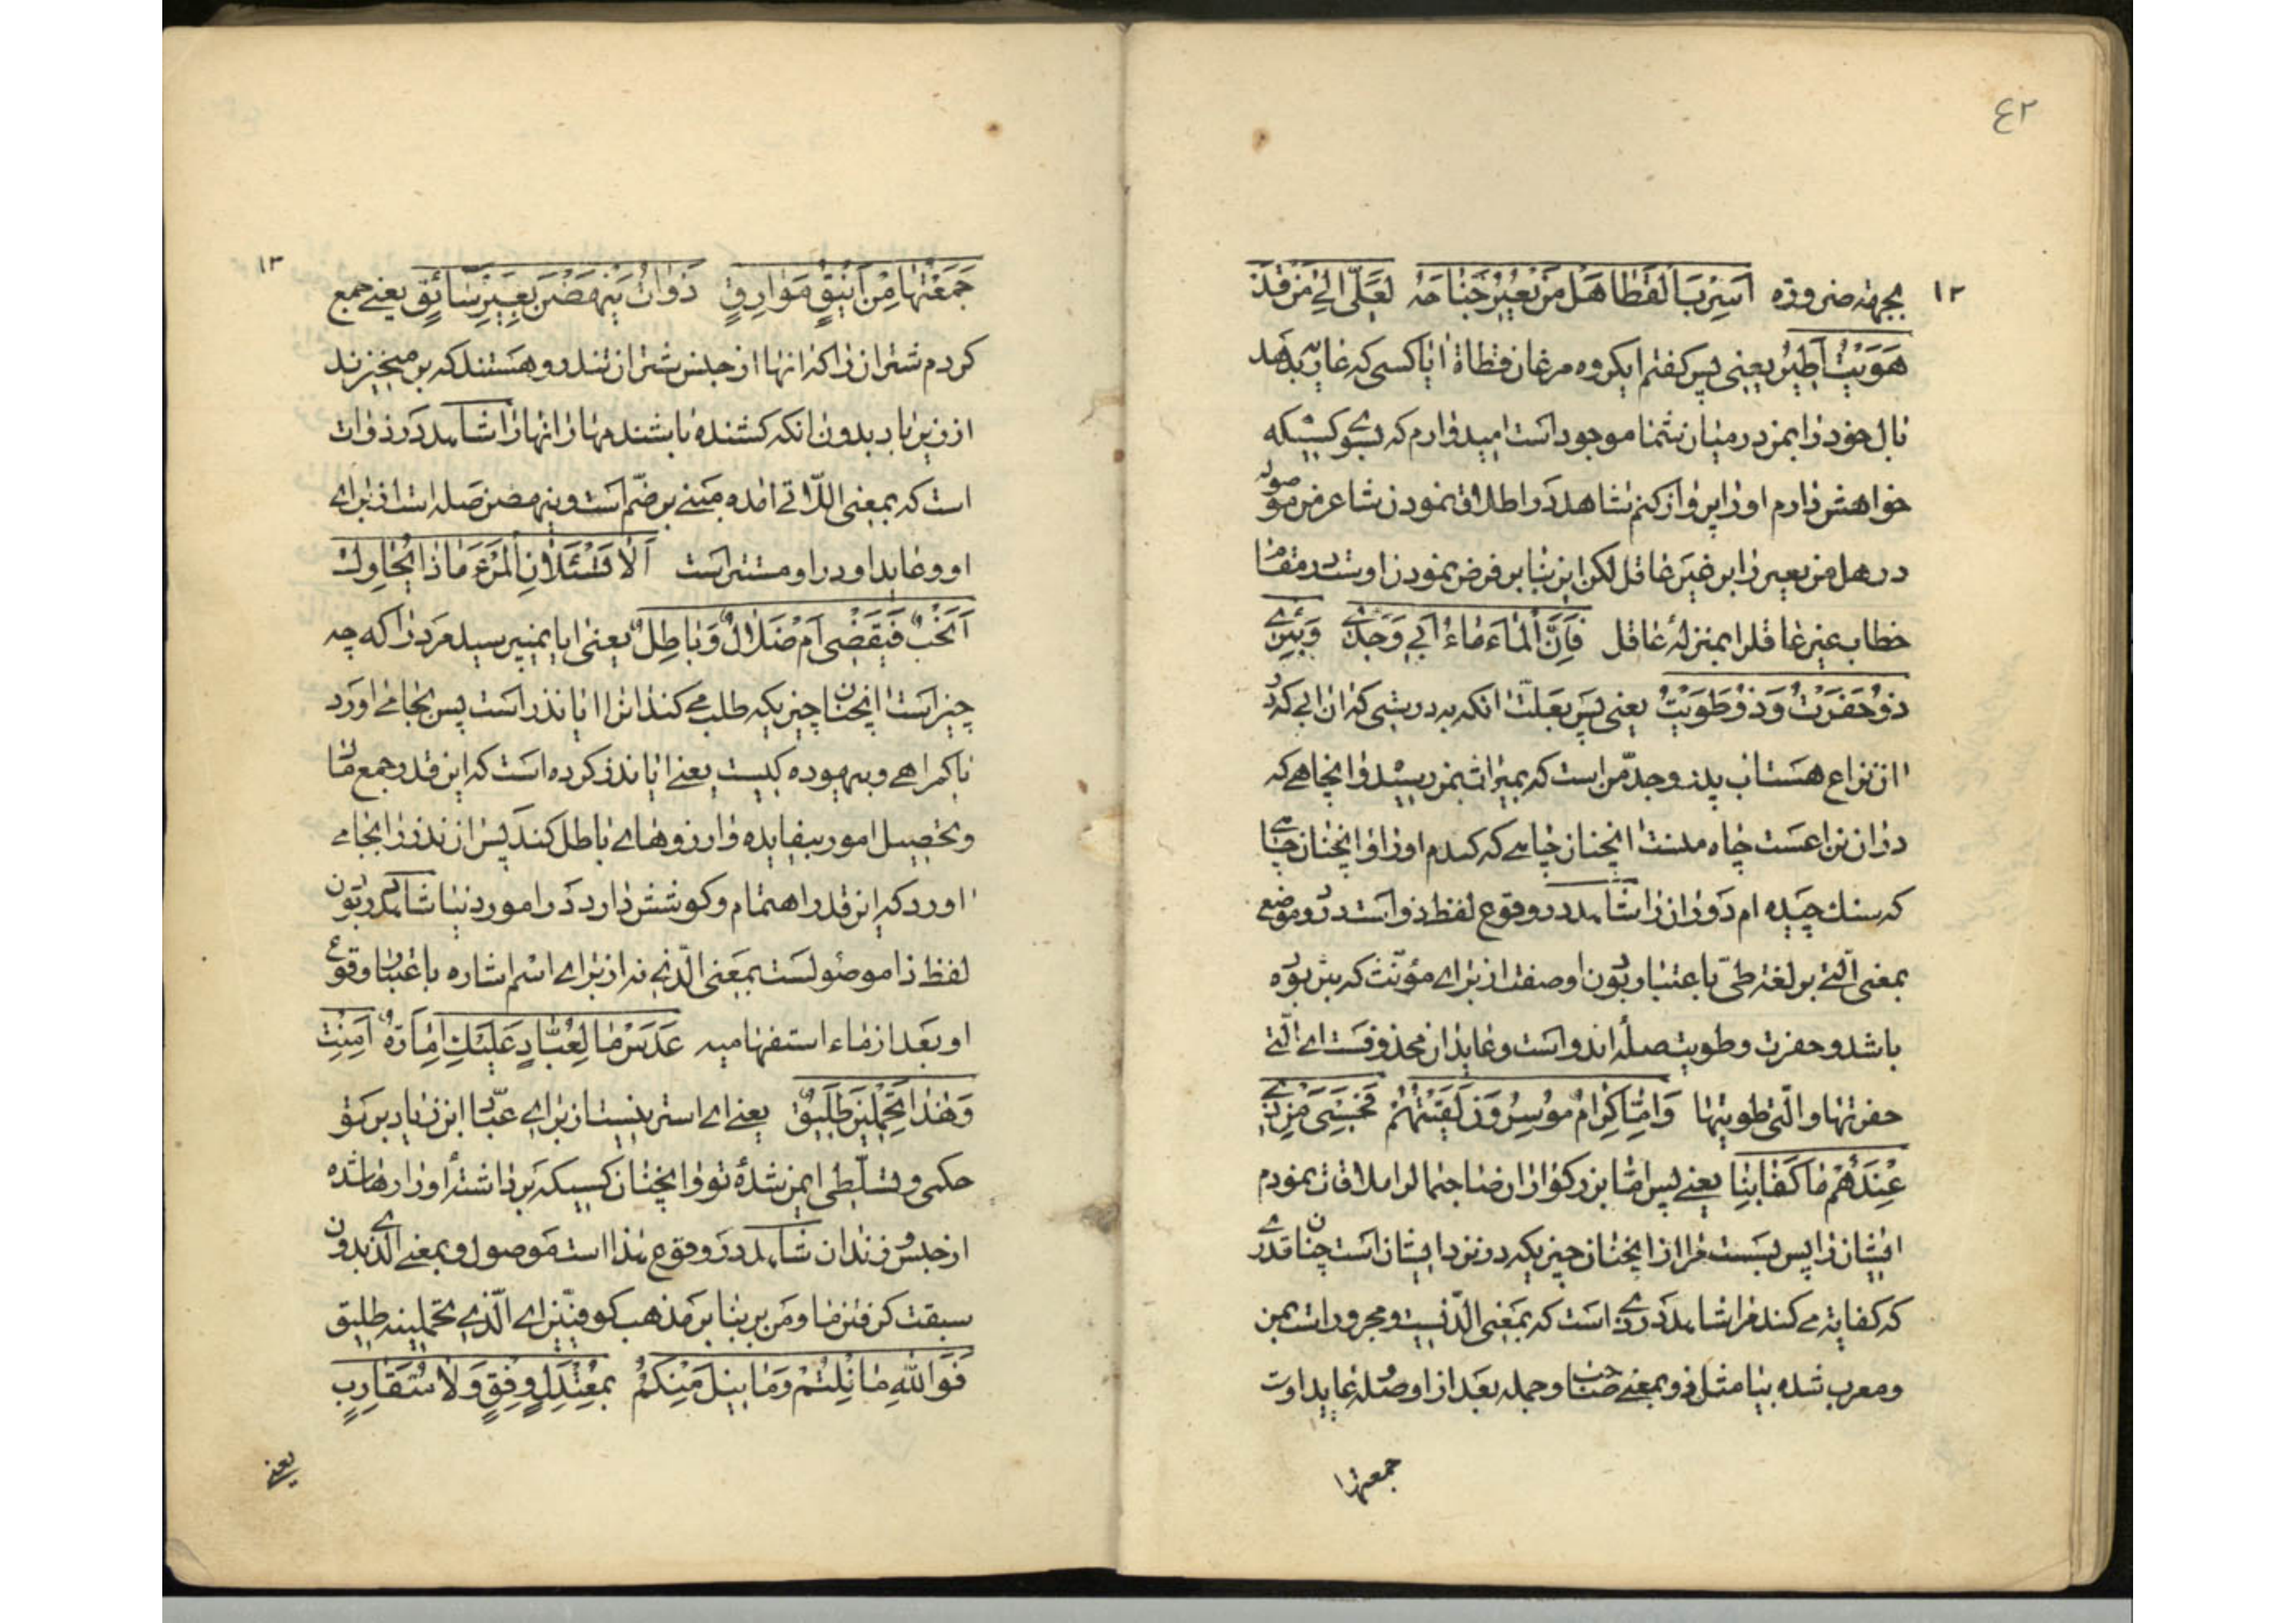 ٤٢
١٢
بجهة ضروره اَسِرْبَ الْقَطَا هَلْ مَنْ يُعِيرُ جَناحَهُ لَعَلّي اِلى مَنْ قَدْ
هَوَيْتُ اَطِيرُ يعنى پس كفتم ايكروه مرغان قطاة ايا كسى كه عاريه بدهد
بال خود را بمن در ميان شما موجود است اميدوارم كه بسوى كسيكه
خواهش دارم او را پرواز كنم شاهد در اطلاق نمودن شاعر من موصوله
در هل من يعير را بر غير عاقل لكن اين بنا بر فرض نمودن اوست در مقام
خطاب غير عاقلرا بمنزلهٔ عاقل فَاِنَّ الْماءَ ماءُ اَبي وَجَدّي وَبِئْري
ذُو حَفَرْتُ وَذُو طَوَيْتُ يعنى پس بعلّت انكه بدرستى كه ان ابى كه در
ان نزاع هست اب پدر و جدّ من است كه بميراث بمن رسيد و انچاهى كه
در ان نزاعست چاه منست انچنان چاهى كه كندم او را و انچنان چاهى
كه سنك چيده ام دور ان را شاهد در وقوع لفظ ذو است در دو موضع
بمعنى الّتى بر لغة طىّ باعتبار بودن او صفت از براى مؤنّث كه بئر بوده
باشد و حفرت و طويت صلهٔ اندو است و عايد ان محذوفست اى الّتى
حفرتها و الّتى طويتها وَاِمّا كِرامٌ مُوسِرُونَ لَقيتُهُمْ فَحَسْبِيَ مِنْ ذي
عِنْدَهُمْ ما كَفانِيا يعنى پس امّا بزركواران صاحبمال را ملاقات نمودم
ايشان را پس بست مرا از انچنان چيزيكه در نزد ايشان است چنان قدرى
كه كفاية مى كند مرا شاهد در ذى است كه بمعنى الّذيست و مجرور است بمن
و معرب شده بنا مثل ذو بمعنى صاحب و جمله بعد از او صله عايد اوست
جمعتها
١٣
جَمَعْتُها مِنْ اَيْنُقٍ مَوارِقٍ ذَواتُ يَنْهَضْنَ بِغَيْرِ سائِقٍ يعنى جمع
كردم شتران را كه انها از جنس شتران تندرو هستند كه بر ميخيزند
از زير بار بدون انكه كشنده باشند مهار انها را شاهد در ذوات
است كه بمعنى اللّاتى امده مبنى بر ضمّ است و ينهضن صله است از براى
او و عايد او در او مستتر است اَلا تَسْئَلانِ الْمَرْءَ ماذا يُحاوِلُ
اَنَحْبٌ فَيُقْضى اَمْ ضَلالٌ وَباطِلٌ يعنى ايا نميپرسيد مرد را كه چه
چيز است انچنان چيزيكه طلب مى كند انرا ايا نذر است پس بجا مى اورد
يا كمراهى و بيهوده كيست يعنى ايا نذر كرده است كه اين قدر جمع مال
و تحصيل امور بيفايده و ارزوهاى باطل كند پس ان نذر را بجا مى
اورد كه اين قدر اهتمام و كوشش دارد در امور دنيا شاهد در بودن
لفظ ذا موصولست بمعنى الّذى نه از براى اسم اشاره باعتبار وقوع
او بعد از ماء استفهاميه عَدَسْ ما لِعَبّادٍ عَلَيْكِ اِمارَةٌ اَمِنْتِ
وَهذا تَحْمِلينَ طَليقٌ يعنى اى استر نيست از براى عبّاد ابن زياد بر تو
حكمى و تسلّطى ايمن شدهٔ تو و انچنان كسيكه برداشتهٔ او را رها شده
از حبس و زندان شاهد در وقوع هذا است موصول و بمعنى الّذى بدون
سبقت كرفتن ما و من بر بنا بر مذهب كوفيّين اى الّذى تحملينه طليق
فَوَاللهِ ما نِلْتُمْ وَما نيلَ مِنْكُمُ بِمُعْتَدِلٍ وَفِقٍ وَلا مُتَقارِبٍ
يعنى